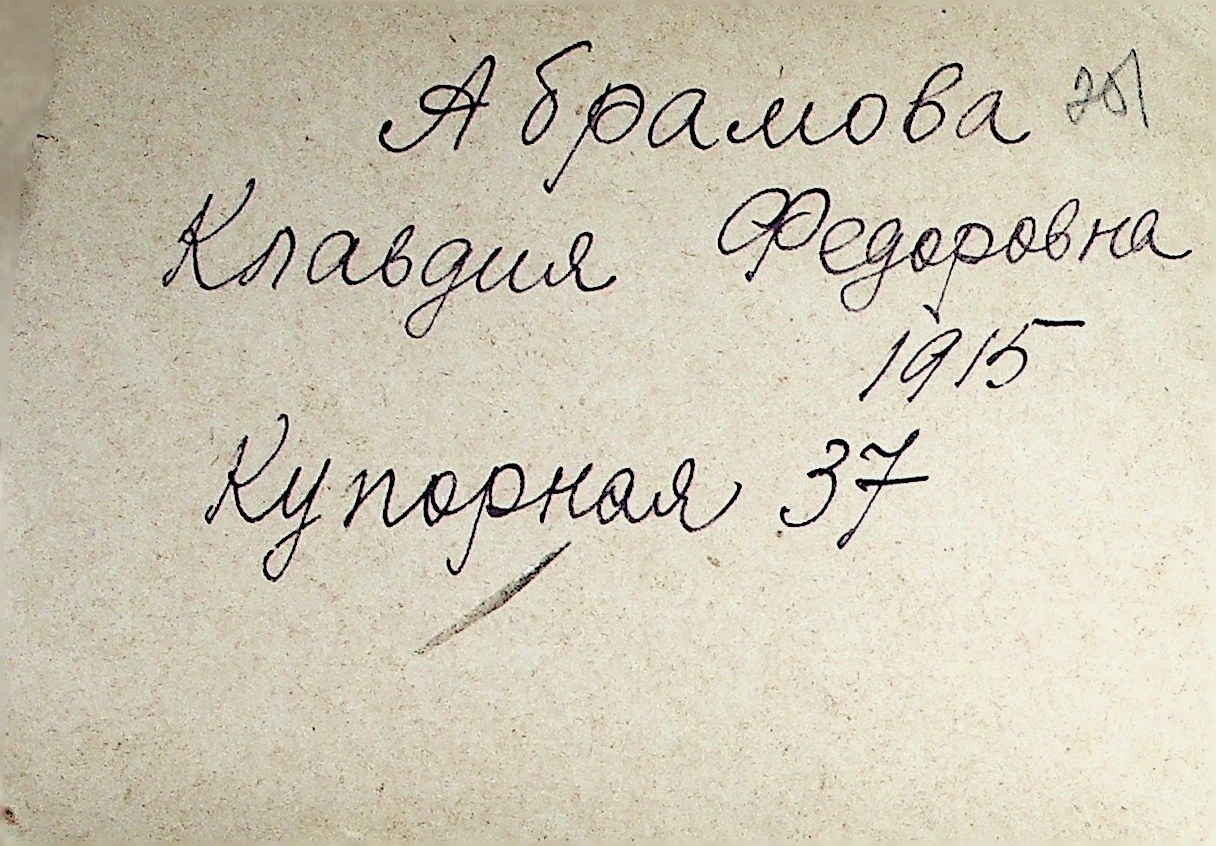 Абрамова
Клавдия Федоровна
1915
Купорная 37